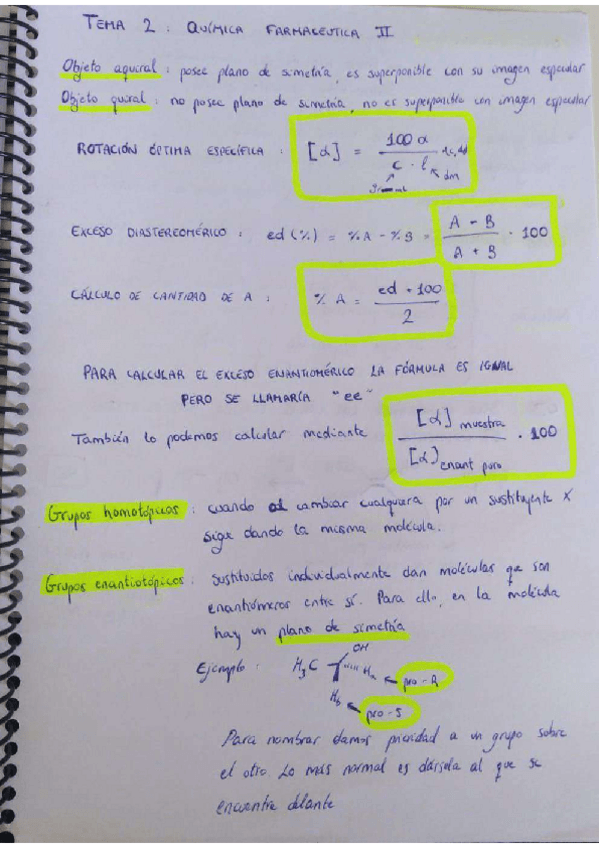 TEMA 2 : QUÍMICA FARMACEUTICA II
Objeto aquiral : posee plano de simetría, es superponible con su imagen especular
Objeto quiral : no posee plano de simetría, no es superponible con imagen especular
ROTACIÓN ÓPTIMA ESPECÍFICA : [α] = 100 α / c · l
dm
EXCESO DIASTEREOMÉRICO : ed (%) = % A - % B = A - B / A + B · 100
CÁLCULO DE CANTIDAD DE A : % A = ed + 100 / 2
PARA CALCULAR EL EXCESO ENANTIOMÉRICO LA FÓRMULA ES IGUAL
PERO SE LLAMARÍA "ee"
También lo podemos calcular mediante [α] muestra / [α] enant puro · 100
Grupos homotópicos : cuando al cambiar cualquiera por un sustituyente X
sigue dando la misma molécula.
Grupos enantiotópicos : sustituidos individualmente dan moléculas que son
enantiómeros entre sí. Para ello, en la molécula
hay un plano de simetría
OH
Ejemplo : H3C Ha ← pro-R
Hb ← pro-S
Para nombrar damos prioridad a un grupo sobre
el otro. Lo más normal es dársela al que se
encuentre delante